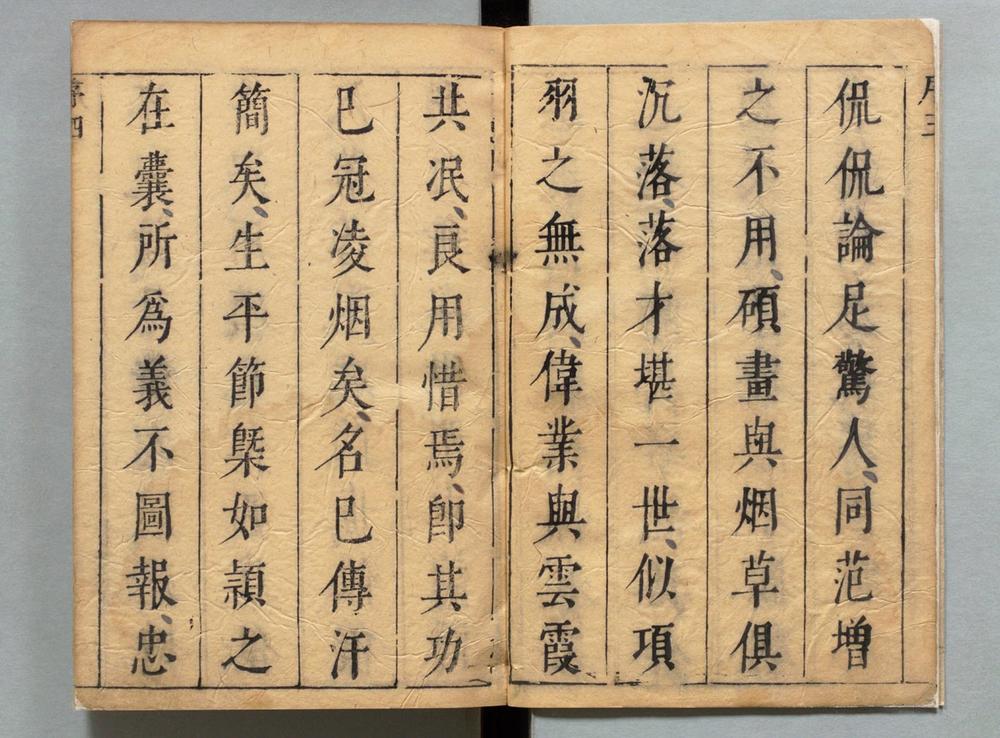 序三
侃侃論足驚人、同范增
之不用、碩畫與烟草俱
沉落、落才堪一世、似項
羽之無成、偉業與雲霞
共泯、良用惜焉、卽其功
已冠凌烟矣、名已傳汗
簡矣、生平節槩如潁之
在囊、所爲義不圖報、忠
序四